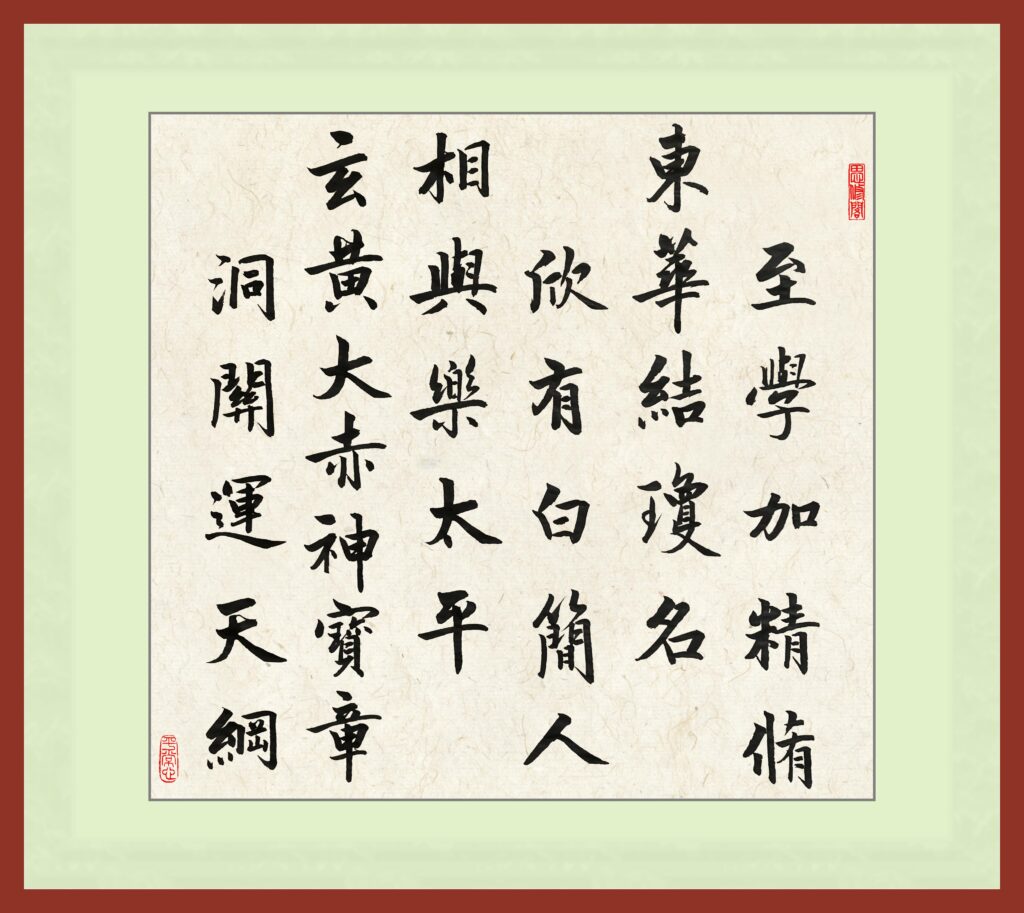 思修閣
至學加精脩
東華結瓊名
欣有白簡人
相與樂太平
玄黃大赤神寶章
洞開運天綱
平常心